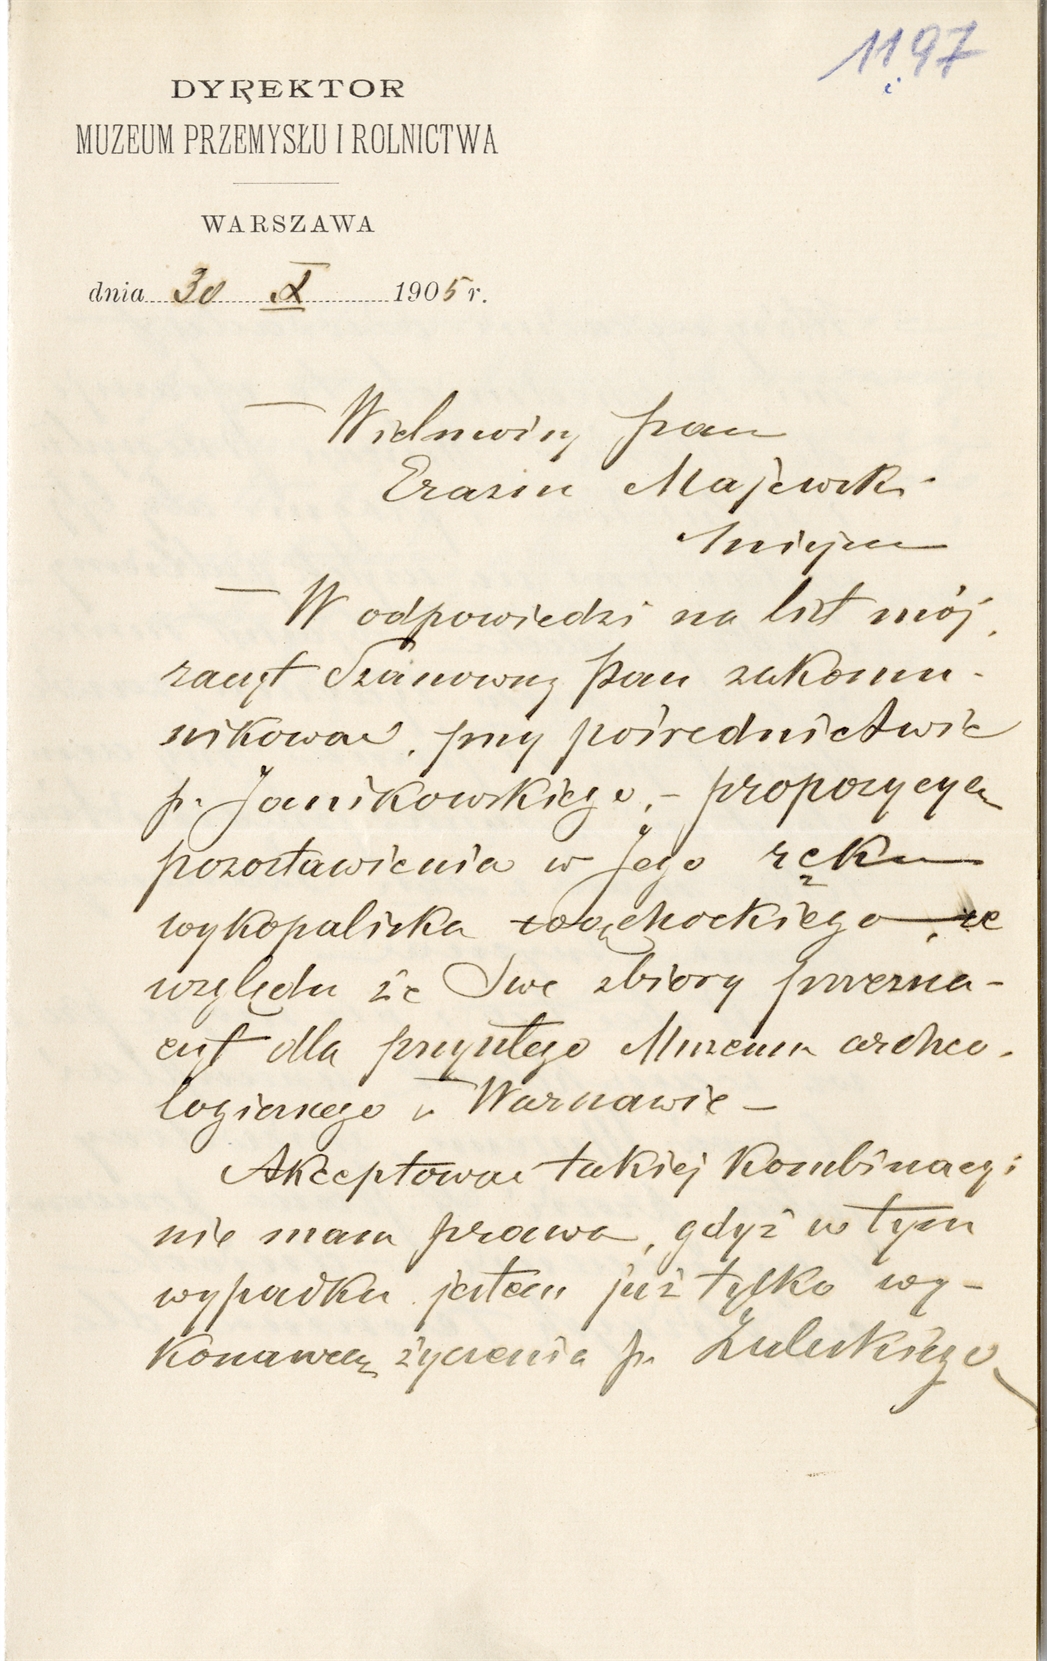 1197
DYREKTOR
MUZEUM PRZEMYSŁU I ROLNICTWA
WARSZAWA
dnia 30 X 1905 r.
Wielmożny pan
Erazm Majewski
W odpowiedzi na list mój,
raczył Szanowny Pan zakomu-
nikować, przy pośrednictwie
p. Janikowskiego, - propozycyą
pozostawienia w Jego ręku
wykopaliska wąchockiego, ze
względu że Swe zbiory przezna-
czył dla przyszłego Muzeum archeo-
logicznego w Warszawie -
Akceptować takiej kombinacyi
nie mam prawa, gdyż w tym
wypadku jestem już tylko wy-
konawcą życzenia p.